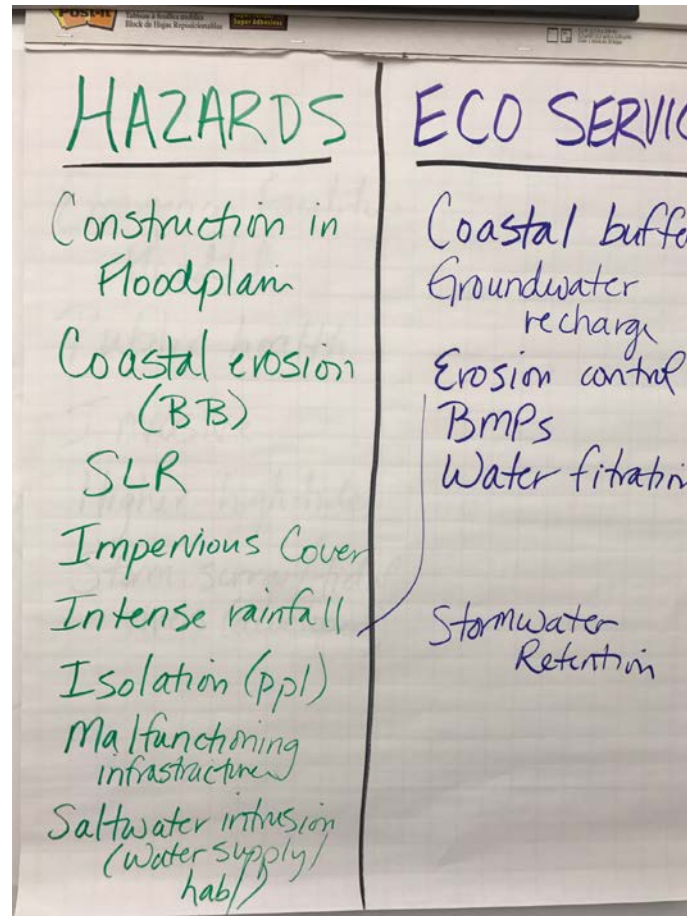 Post-it
Tableau à feuilles mobiles
Block de Hojas Reposicionables
Super Adhesivas
HAZARDS
Construction in
Floodplain
Coastal erosion
(BB)
SLR
Impervious Cover
Intense rainfall
Isolation (ppl)
Malfunctioning
infrastructure
Saltwater intrusion
(water supply/
hab/)
ECO SERVIC
Coastal buffe
Groundwater
recharge
Erosion control
BMPs
Water fitration
Stormwater
Retention